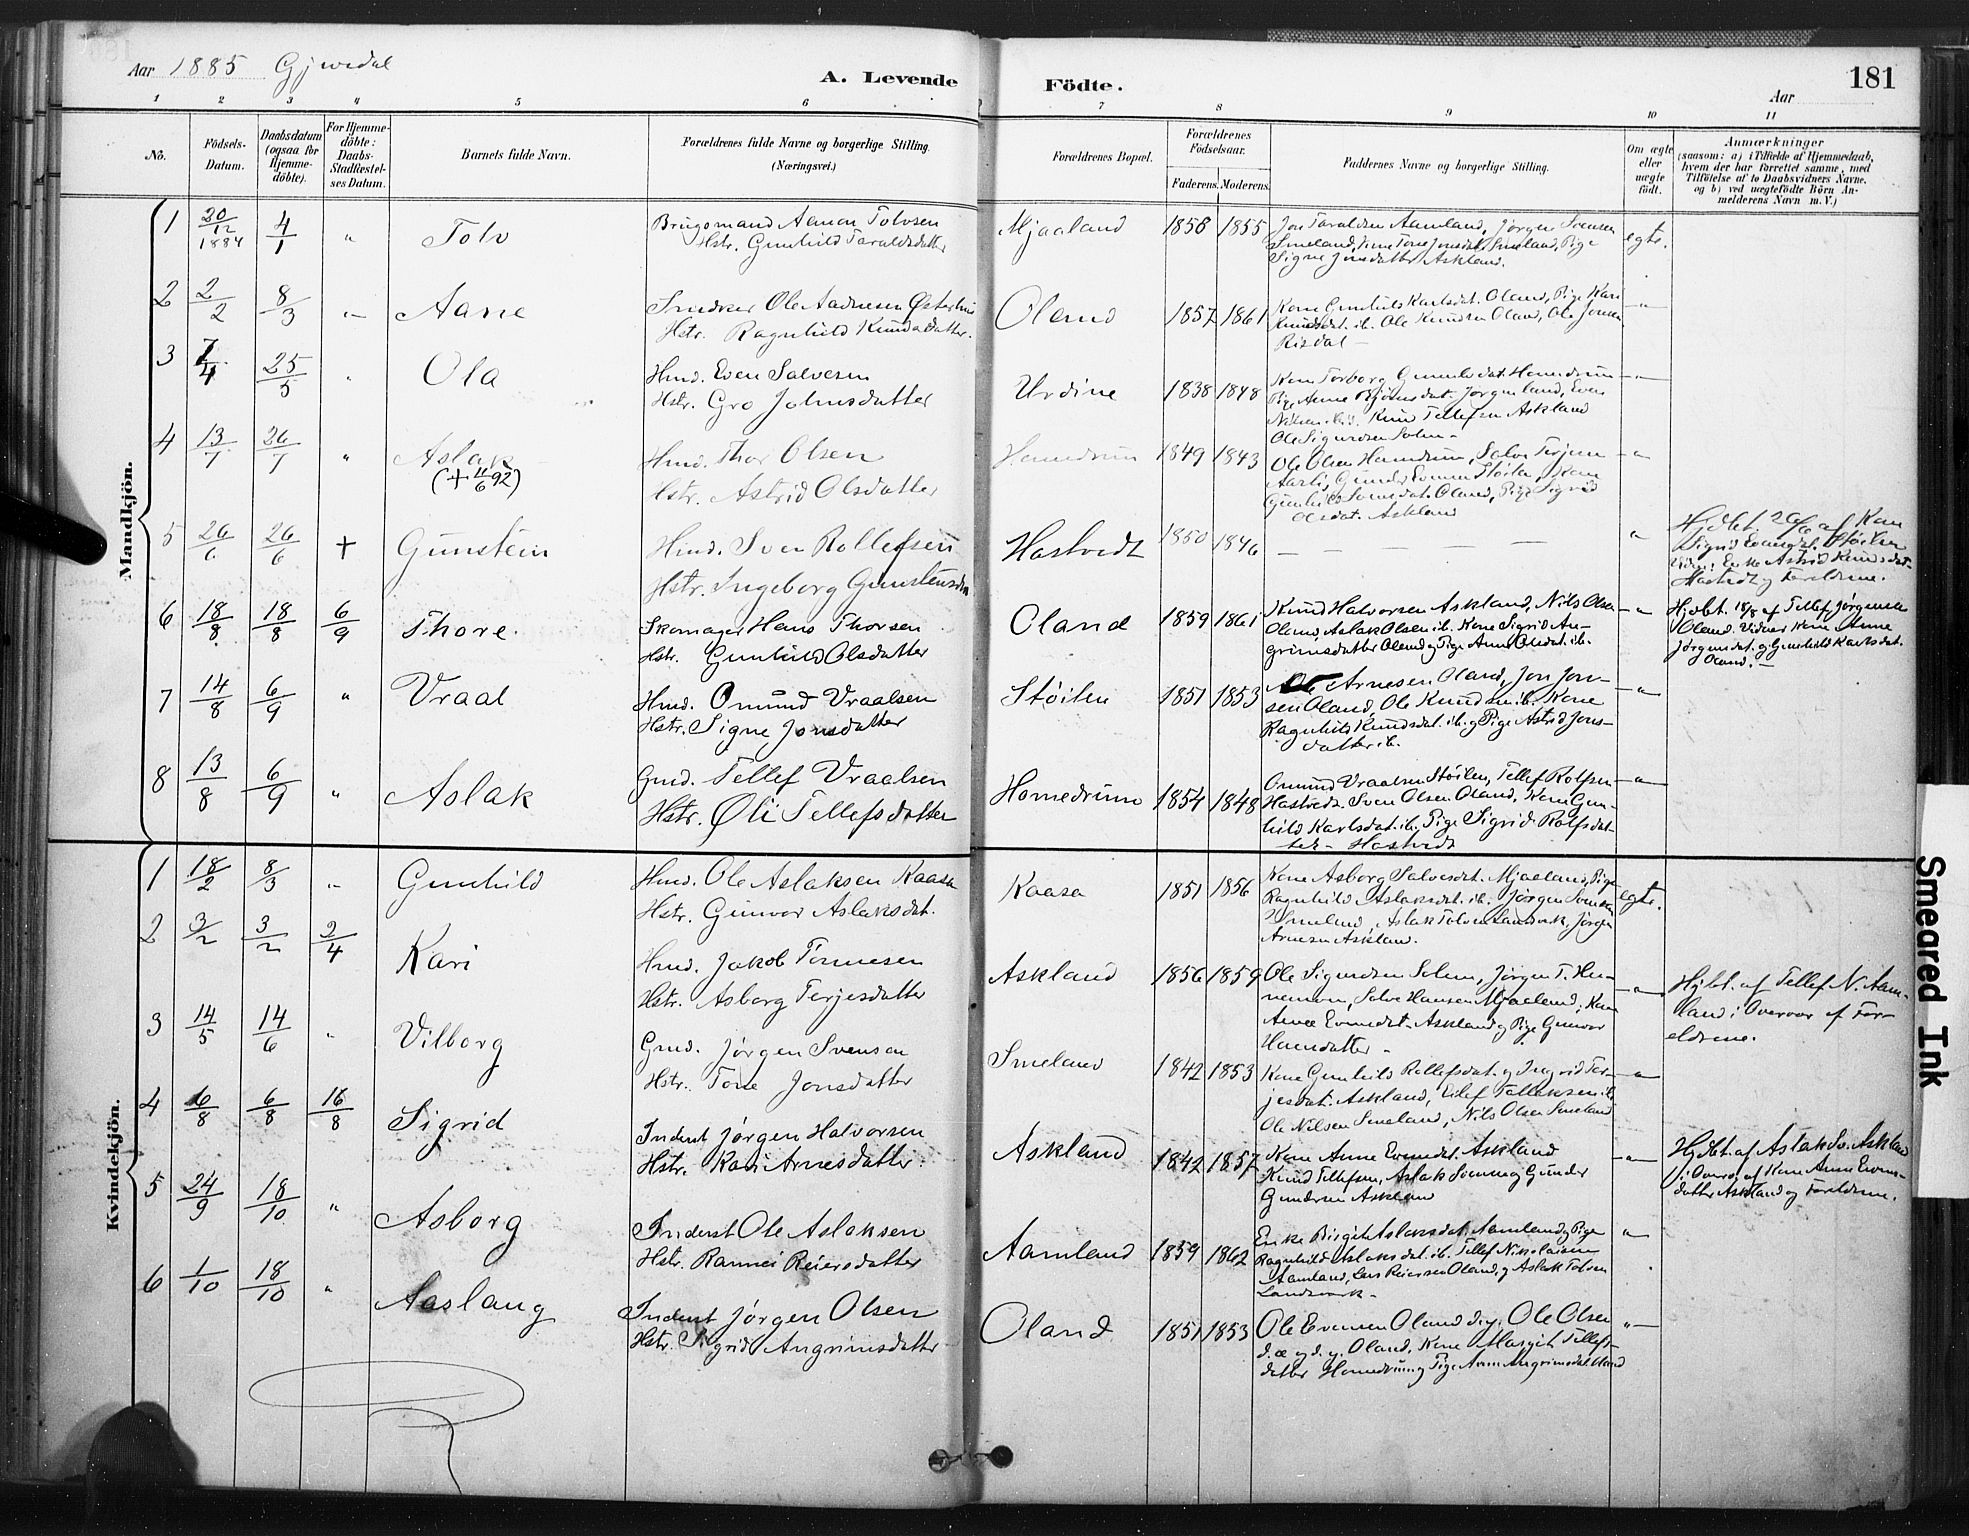 Aar 1885 Gjøvdal
A. Levende Födte.
Aar
181
1 2 3 4 5 6 7 8 9 10 11
No.
Födsels-Datum.
Daabsdatum (ogsaa for Hjemme-döbte).
For Hjemme-döbte: Daabs-Stadfæstel-ses Datum.
Barnets fulde Navn.
Forældrenes fulde Navne og borgerlige Stilling. (Næringsvei.)
Forældrenes Bopæl.
Forældrenes Födselsaar.
Faderens. Moderens.
Faddernes Navne og borgerlige Stilling.
Om ægte eller uægte födt.
Anmærkninger
(saasom: a) i Tilfælde af Hjemmedaab,
hvem der har forrettet samme, med
Tilföielse af to Daabsvidners Navne,
og b) ved uægtefödte Börn An-
melderens Navn m. V.)
Mandkjön.
1 20/12 1884 4/1 " Tolv
Brugsmand Aanon Tolvsen
Hstr. Gunhild Taraldsdatter
Mjaaland 1858 1855
Jon Taraldsen Aamland, Jørgen Svensen
Smeland, Kone Tone Jonsdat. Smeland, Pige
Signe Jonsdatter Askland.
egte.
2 2/2 8/3 " Aane
Snedker Ole Aadnesen Østerhus
Hstr. Ragnhild Knudsdatter.
Oland 1857 1861
Kone Gunhild Karlsdat. Oland, Pige Kari
Knudsdat. ib. Ole Knudsen Oland, Ole Jonsen
Risdal
"
3 7/4 25/5 " Ola
Hmd. Even Salvesen
Hstr. Gro Johnsdatter
Urdine 1838 1848
Kone Torborg Gunulvsdat. Homedrum
Pige Anne Bjønsdat. Jørgenland, Even
Nilsen. Knud Tellefsen Askland
Ole Sigurdsen Solen
"
4 13/1 26/1 " Aslak
(+ 11/6 92)
Hmd. Thor Olsen
Hstr. Astrid Olsdatter
Homedrum 1849 1843
Ole Olsen Homdrum, Salve Terjesen
Aarli, Gunder Evensen Støilen, Kone
Gunhild Svensdat. Oland, Pige Sigrid
Olsdat. Askland
"
5 26/6 26/6 + Gunstein
Hmd. Sven Rollefsen
Hstr. Ingeborg Gunstensdtr
Hastvedt 1850 1846
— — — —
"
Hjdbt. 26/6 af Kone
Sigrid Evensdat. Støilen
Vidner: Enke Astrid Knudsdat.
Hastvedt og Foreldrene.
6 18/8 18/8 6/9 Thore.
Skomager Hans Thorsen
Hstr. Gunhild Olsdatter
Oland 1859 1861
Knud Halvorsen Askland, Nils Olsen
Oland, Aslak Olsen ib. Kone Sigrid An-
grimsdatter Oland og Pige Anne Olsdat. ib.
"
Hjdbt. 18/8 af Tellef Jørgensen
Oland. Vidner Kone Anne
Jørgensdat. og Gunhild Karlsdat.
Oland.
7 14/8 6/9 " Vraal
Hmd. Omund Vraalsen
Hstr. Signe Jonsdatter
Støilen 1851 1853
Ole Arnesen Oland, Jon Jon-
sen Oland, Ole Knudsen ib. Kone
Ragnhild Knudsdat. ib. og Pige Astrid Jons-
datter ib.
"
8 13/8 6/9 " Aslak
Gmd. Tellef Vraalsen
Hstr. Øli Tellefsdatter
Homedrum 1854 1848
Omund Vraalsen Støilen, Tellef Rolfsen
Hastvedt. Sven Olsen Oland, Kone Gun-
hild Karlsdat. ib. Pige Sigrid Rolfsdat-
ter Hastvedt
"
Kvindekjön.
1 18/2 8/3 " Gunhild
Hmd. Ole Aslaksen Kaasa
Hstr. Gunvor Aslaksdat.
Kaasa 1851 1856
Kone Asborg Salvesdat. Mjaaland, Pige
Ragnhild Aslaksdat. ib. Jørgen Svensen
Smeland, Aslak Tolvsen Landsverk, Jørgen
Arnesen Askland.
egte.
2 3/2 3/2 2/4 Kari
Hmd. Jakob Tønnesen
Hstr. Asborg Terjesdatter
Askland 1856 1859
Ole Sigurdsen Solem, Jørgen T. Hu-
nemoen, Salve Hansen Mjaaland, Kone
Anne Evensdat. Askland og Pige Gunvor
Hansdatter
"
Hjdbt. af Tellef N. Aam-
land i Overvær af For-
eldrene.
3 14/5 14/6 " Vilborg
Gmd. Jørgen Svensen
Hstr. Tone Jonsdatter
Smeland 1842 1853
Kone Gunhild Rollefsdat. og Ingrid Ter-
jesdat. Askland, Eilef Tellefsen ib.
Ole Nilsen Smeland, Nils Olsen Smeland
"
4 6/8 6/8 16/8 Sigrid
Inderst Jørgen Halvorsen
Hstr. Kari Arnesdatter.
Askland 1842 1857
Kone Anne Evensdat. Askland
Knud Tellefsen, Aslak Svensen og Gunder
Gundersen Askland
"
Hjdbt. af Aslak Sv. Askland
i Overv. af Kone Anne Evens-
datter Askland og Foreldrene.
5 24/9 18/10 " Asborg
Inderst Ole Aslaksen
Hstr. Rannei Reiersdatter
Aamland 1859 1862
Enke Birgit Aslaksdat. Aamland og Pige
Ragnhild Aslaksdat. ib. Tellef Nikolaisen
Aamland, Lars Reiersen Oland, og Aslak Tolvsen
Landsverk
"
6 1/10 18/10 " Aaslaug
Inderst Jørgen Olsen
Hstr. Sigrid Angrimsdatter
Oland 1851 1853
Ole Evensen Oland d.y. Ole Olsen
d. æ og d. y. Oland, Kone Margit Tellefs-
datter Homedrum og Pige Anne Angrimsdat. Oland
"
Smeared Ink